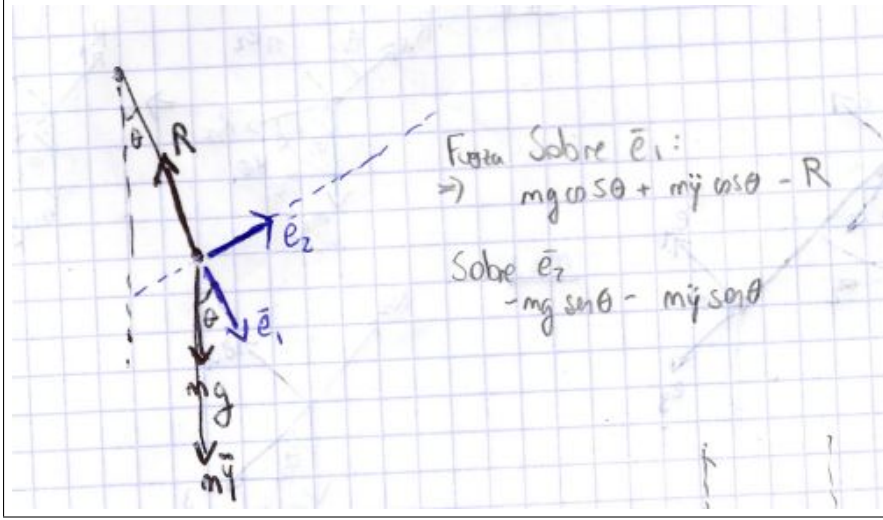 θ
R
ē₂
θ
ē₁
mg
mÿ
Fuerza Sobre ē₁:
=> mg cosθ + mÿ cosθ - R
Sobre ē₂
-mg senθ - mÿ senθ